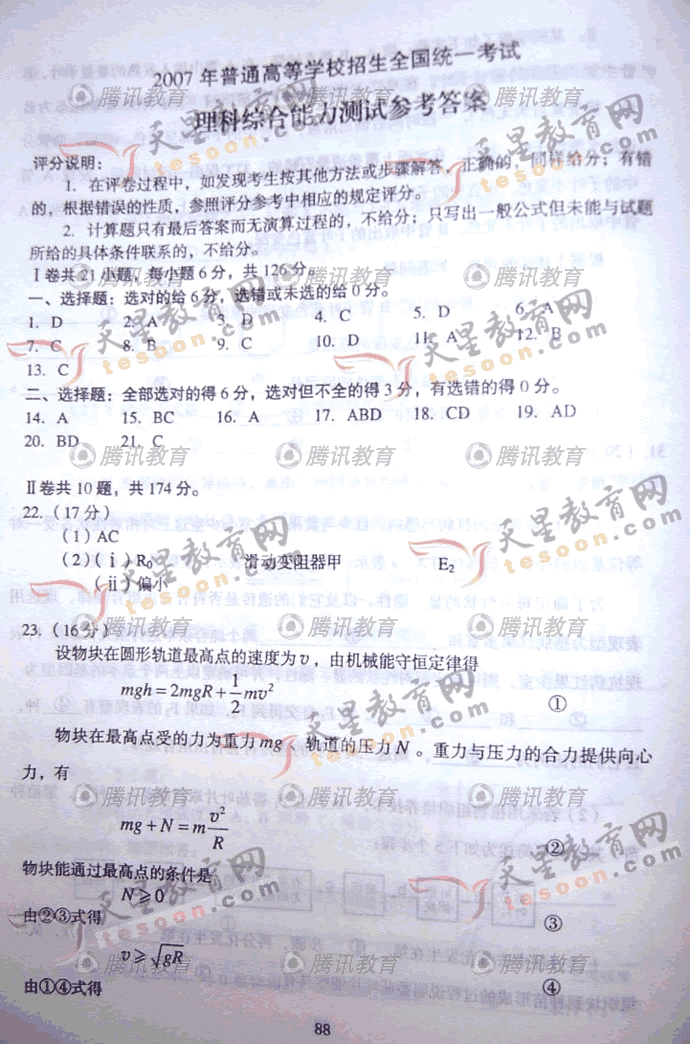 2007年普通高等学校招生全国统一考试
理科综合能力测试参考答案
评分说明：
1. 在评卷过程中，如发现考生按其他方法或步骤解答，正确的，同样给分；有错
的，根据错误的性质，参照评分参考中相应的规定评分。
2. 计算题只有最后答案而无演算过程的，不给分；只写出一般公式但未能与试题
所给的具体条件联系的，不给分。
Ⅰ卷共21小题，每小题6分，共126分。
一、选择题：选对的给6分，选错或未选的给0分。
1. D 2. A 3. D 4. C 5. D 6. A
7. C 8. B 9. C 10. D 11. A 12. B
13. C
二、选择题：全部选对的得6分，选对但不全的得3分，有选错的得0分。
14. A 15. BC 16. A 17. ABD 18. CD 19. AD
20. BD 21. C
Ⅱ卷共10题，共174分。
22.（17分）
（1）AC
（2）（ⅰ）R₀ 滑动变阻器甲 E₂
（ⅱ）偏小
23.（16分）
设物块在圆形轨道最高点的速度为v，由机械能守恒定律得
mgh=2mgR+1/2mv² ①
物块在最高点受的力为重力mg、轨道的压力N。重力与压力的合力提供向心
力，有
mg+N=mv²/R ②
物块能通过最高点的条件是
N≥0
由②③式得 ③
v≥√gR
由①④式得 ④
88
腾讯教育
天星教育网
tesoon.com